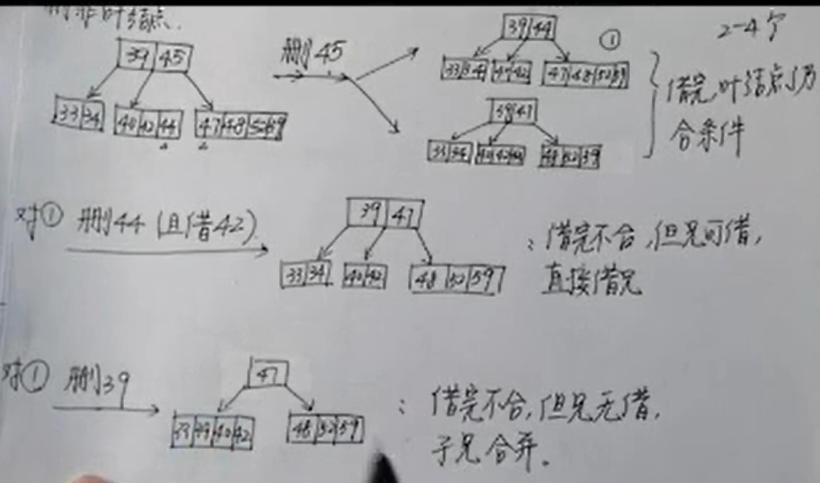 删非叶结点.
39 45
33 34 40 42 44 47 48 52 59
删45
39 44 ① 2-4个
33 34 40 42 47 48 52 59
39 47
33 34 40 42 44 48 52 59
借完叶结点仍
合条件
对① 删44 (且借42)
39 47
33 34 40 42 48 52 59
: 借完不合,但兄可借,
直接借兄
对① 删39
47
33 34 40 42 48 52 59
: 借完不合,但兄无借,
子兄合并.